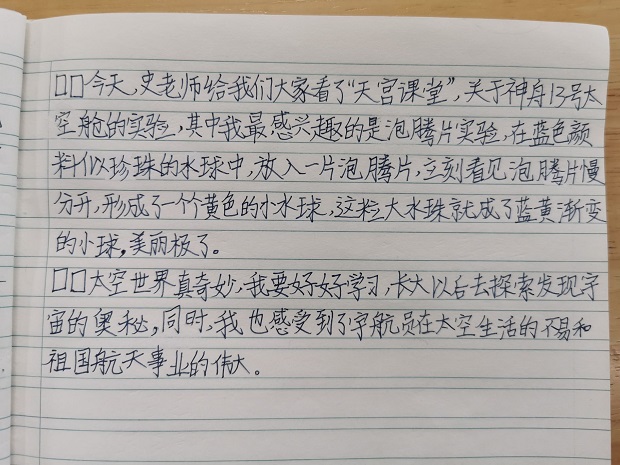 □□今天,史老师给我们大家看了“天宫课堂”,关于神舟13号太
空舱的实验,其中我最感兴趣的是泡腾片实验,在蓝色颜
料似珍珠的水球中,放入一片泡腾片,立刻看见泡腾片慢
分开,形成了一个个黄色的小水球,这粒大水珠就成了蓝黄渐变
的小球,美丽极了。
□□太空世界真奇妙,我要好好学习,长大以后去探索发现宇
宙的奥秘,同时,我也感受到了宇航员在太空生活的不易和
祖国航天事业的伟大。